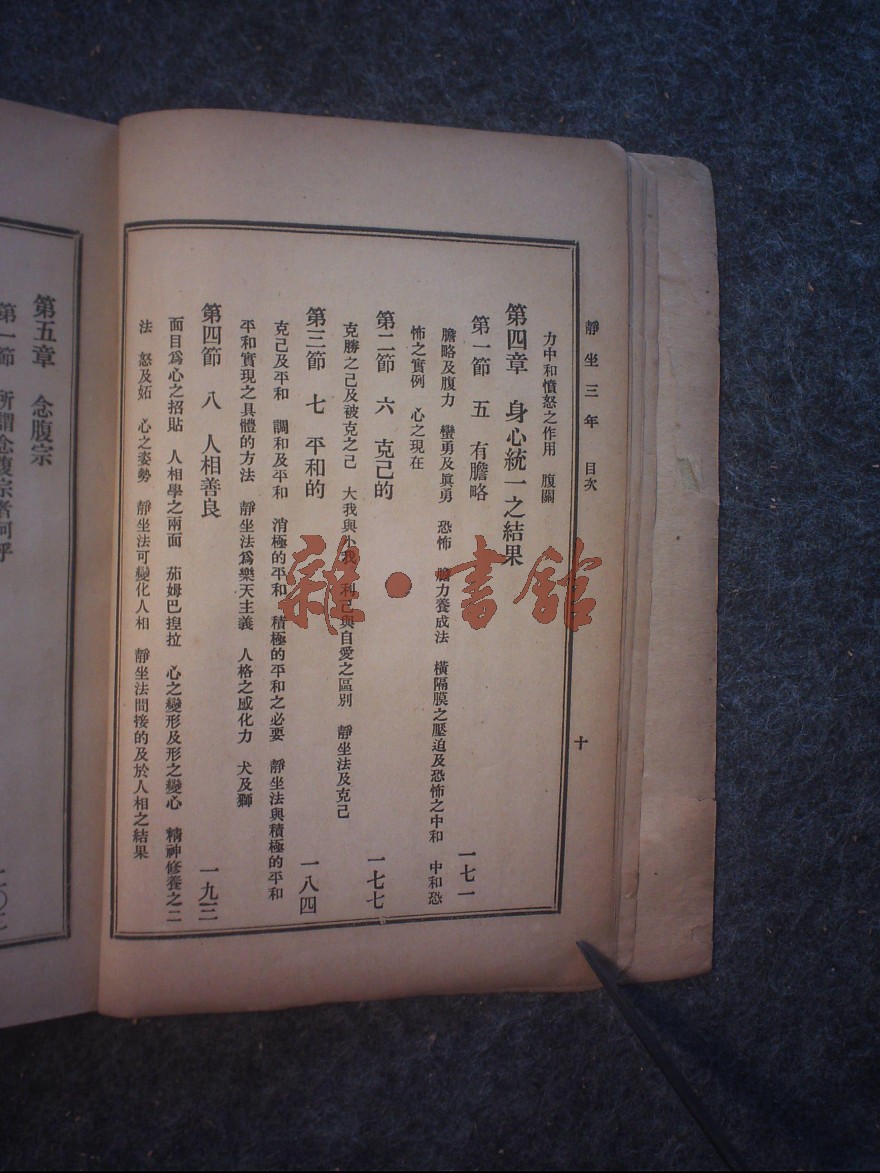 靜坐三年 目次 十
力中和憤怒之作用 腹關
第四章 身心統一之結果
第一節 五 有膽略 一七一
膽略及腹力 蠻勇及眞勇 恐怖 膽力養成法 橫隔膜之壓迫及恐怖之中和 中和恐
怖之實例 心之現在
第二節 六 克己的 一七七
克勝之己及被克之己 大我與小我 利己與自愛之區別 靜坐法及克己
第三節 七 平和的 一八四
克己及平和 調和及平和 消極的平和 積極的平和之必要 靜坐法與積極的平和
平和實現之具體的方法 靜坐法爲樂天主義 人格之感化力 犬及獅
第四節 八 人相善良 一九三
面目爲心之招貼 人相學之兩面 茄姆巴揑拉 心之變形及形之變心 精神修養之二
法 怒及妬 心之姿勢 靜坐法可變化人相 靜坐法間接的及於人相之結果
第五章 念腹宗
第一節 所謂念腹宗者何乎
雜·書館